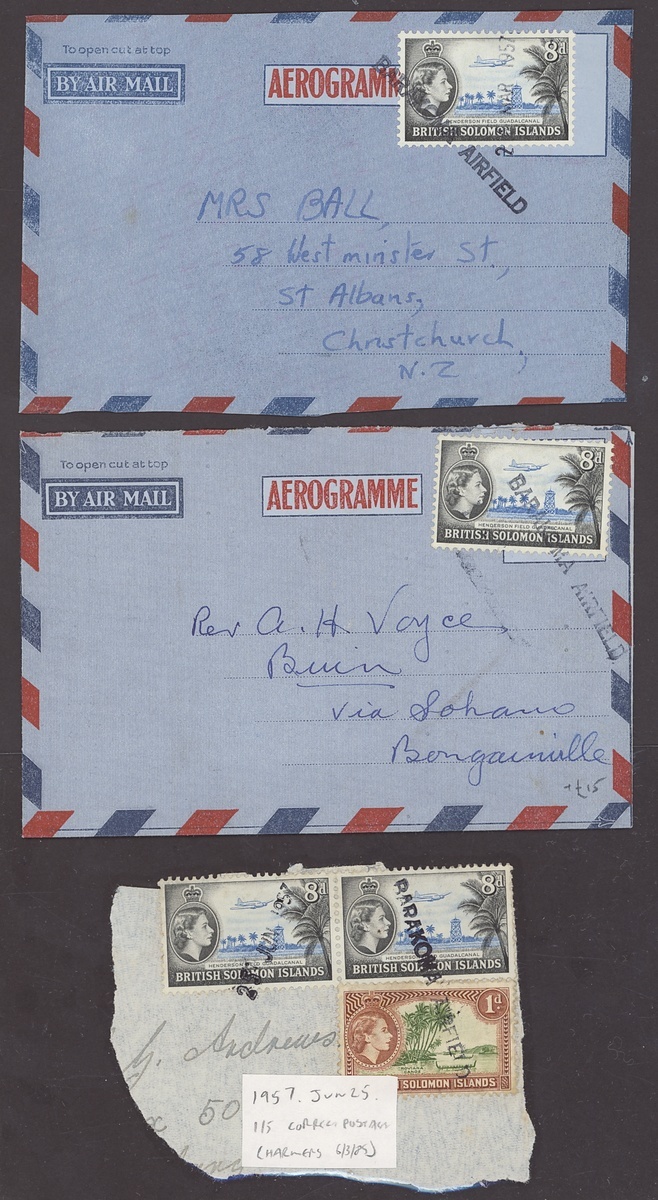 To open cut at top
BY AIR MAIL
AEROGRAMME
8d
HENDERSON FIELD GUADALCANAL
BRITISH SOLOMON ISLANDS
MAR 1957
AIRFIELD
MRS BALL,
58 Westminster St,
St Albans,
Christchurch,
N.Z
To open cut at top
BY AIR MAIL
AEROGRAMME
8d
HENDERSON FIELD GUADALCANAL
BRITISH SOLOMON ISLANDS
BARAKOMA AIRFIELD
Rev A. H Voyce,
Buin
via Sohano
Bougainville
8d
HENDERSON FIELD GUADALCANAL
BRITISH SOLOMON ISLANDS
JUN 1957
8d
HENDERSON FIELD GUADALCANAL
BRITISH SOLOMON ISLANDS
BARAKOMA AIRFIELD
1d
SOLOMON ISLANDS
Andrews
50
1957. JUN 25.
1/5 CORRECT POSTAGE
(HARMERS 6/3/85)